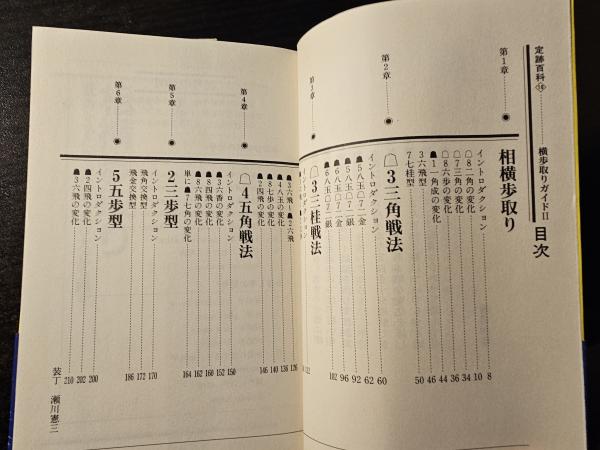 定跡百科⑯
横歩取りガイドⅡ 目次
第1章
相横歩取り
イントロダクション 8
☖8二角の変化 10
☖7三角の変化 34
☖8六歩の変化 36
☗1一角成の変化 44
3六飛型 46
7七桂型 50
第2章
☖3三角戦法
イントロダクション 60
☗5八玉☖7二金 62
☗5八玉☖7二銀 92
☗6八玉☖7二金 96
☗6八玉☖7二銀 102
第3章
☖3三桂戦法
☗3六飛〜☗2六飛 126
☗4八玉の変化 136
☗8七歩の変化 140
☗2四飛の変化 146
第4章
☖4五角戦法
イントロダクション 150
☗3六香の変化 152
☗8四飛の変化 160
☗8六飛の変化 162
単に☗7七角の変化 164
第5章
2三歩型
イントロダクション 170
飛角交換型 172
飛金交換型 186
第6章
5五歩型
イントロダクション 200
☗2四飛の変化 202
☗3六飛の変化 210
装丁 瀬川憲三